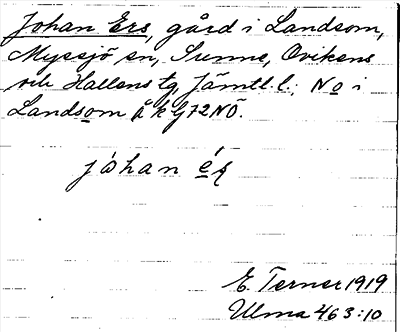 Johan Ers, gård i Landsom,
Myssjö sn, Sunne, Ovikens
och Hallens tg, Jämtl. l.; No i
Landsom å k bl 72 NÖ.
jòhan é̱ʂ
E. Terner 1919
Ulma 463:10